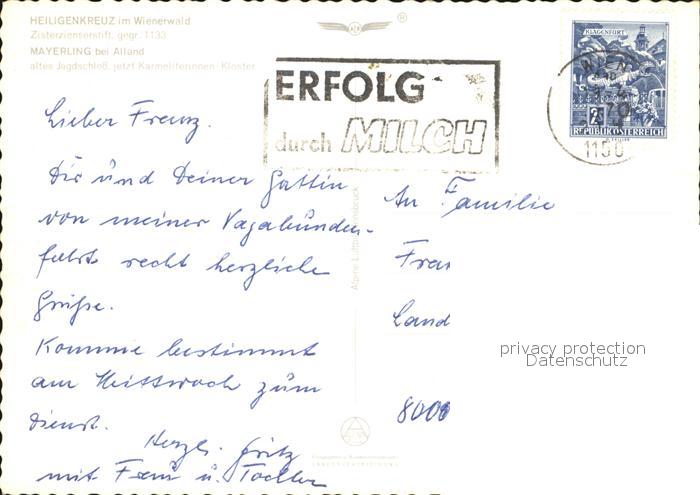 HEILIGENKREUZ im Wienerwald
Zisterzienserstift, gegr. 1133
MAYERLING bei Alland
altes Jagdschloß, jetzt Karmeliterinnen-Kloster
ERFOLG
durch MILCH
KLAGENFURT
2
REPUBLIK ÖSTERREICH
WIEN
1150
Lieber Frenz.
Dir und Deiner Gattin
von meiner Vagabunden-
fahrt recht herzliche
Grüße.
Komme bestimmt
am Mittwoch zum
Dienst.
Herzl. Fritz
mit Frau u. Tochter
An Familie
Fran
Land
8000
privacy protection
Datenschutz